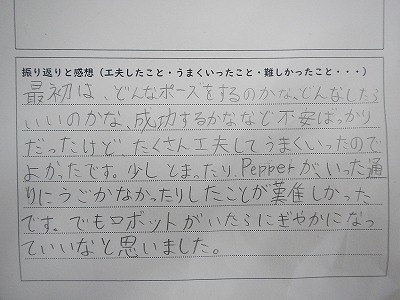 振り返りと感想（工夫したこと・うまくいったこと・難しかったこと・・・）
最初は、どんなポーズをするのかな、どんなしたら
いいのかな、成功するかななど不安ばっかり
だったけど、たくさん工夫してうまくいったので
よかったです。少しとまったり、Pepperが、いった通
りにうごかなかったりしたことが難しかった
です。でもロボットがいたらにぎやかになっ
ていいなと思いました。